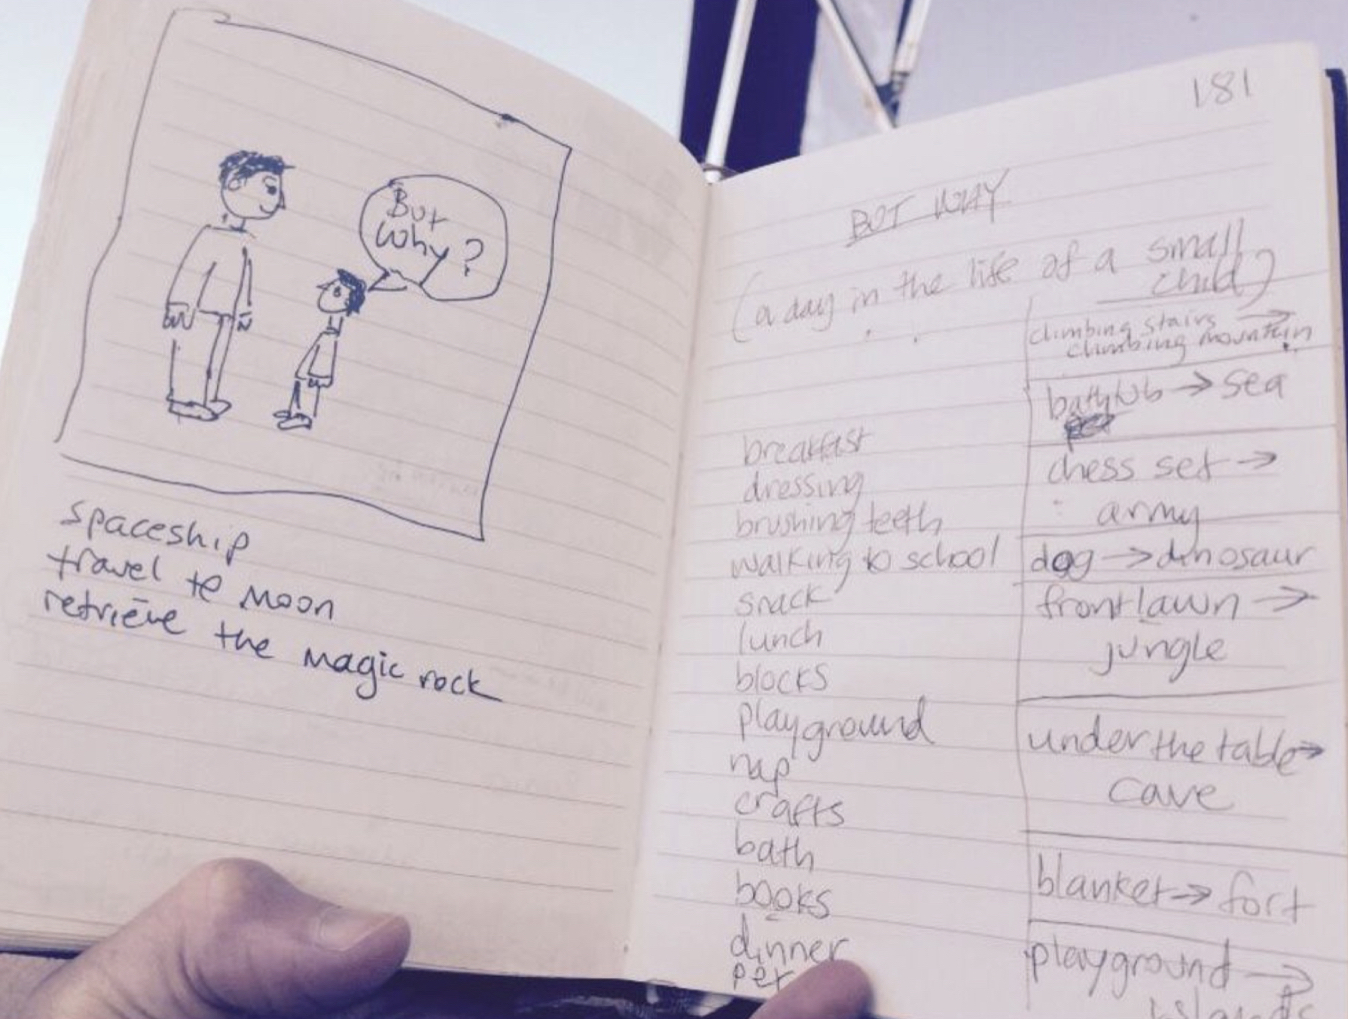 But
Why?
spaceship
travel to Moon
retrieve the magic rock
181
BUT WHY
(a day in the life of a small
child)
breakfast
dressing
brushing teeth
walking to school
snack
lunch
blocks
playground
nap
crafts
bath
books
dinner
pet
climbing stairs →
climbing mountain
bathtub → sea
chess set →
army
dog → dinosaur
front lawn →
jungle
under the table →
cave
blanket → fort
playground →
islands